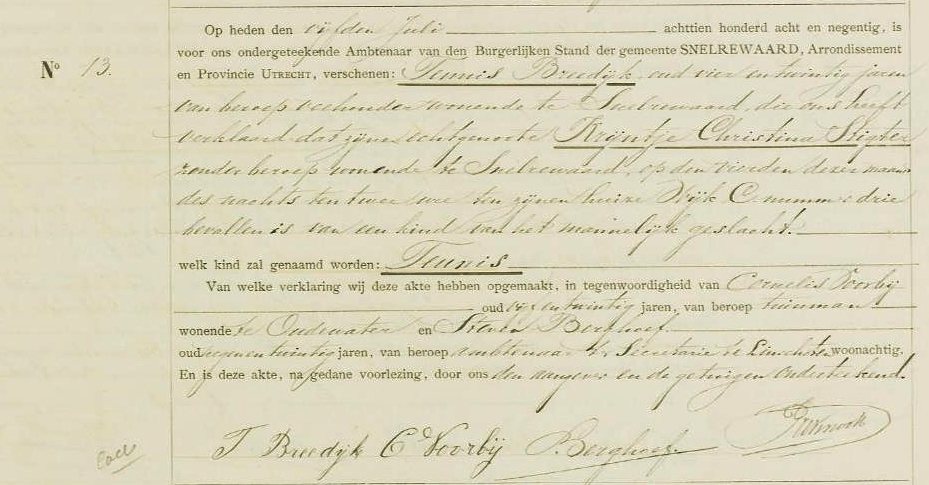 Op heden den vijfden Juli achttien honderd acht en negentig, is
voor ons ondergeteekende Ambtenaar van den Burgerlijken Stand der gemeente SNELREWAARD, Arrondissement
Nº 13. en Provincie UTRECHT, verschenen: Teunis Breedijk, oud vier en twintig jaren
van beroep veehouder wonende te Snelrewaard, die ons heeft
verklaard dat zijne echtgenoote Krijntje Christina Stigter
zonder beroep wonende te Snelrewaard, op den vierden dezer maand
des nachts ten twee ure ten zijnen huize Wijk C nummer drie
bevallen is van een kind van het mannelijk geslacht.
welk kind zal genaamd worden: Teunis
Van welke verklaring wij deze akte hebben opgemaakt, in tegenwoordigheid van Cornelis Voorbij
oud vijf en twintig jaren, van beroep tuinman
wonende te Oudewater en Steven Berghoef
oud negen en twintig jaren, van beroep ambtenaar ter Secretarie te Linschoten woonachtig.
En is deze akte, na gedane voorlezing, door ons den aangever en de getuigen onderteekend.
T Breedijk C Voorbij S. Berghoef.